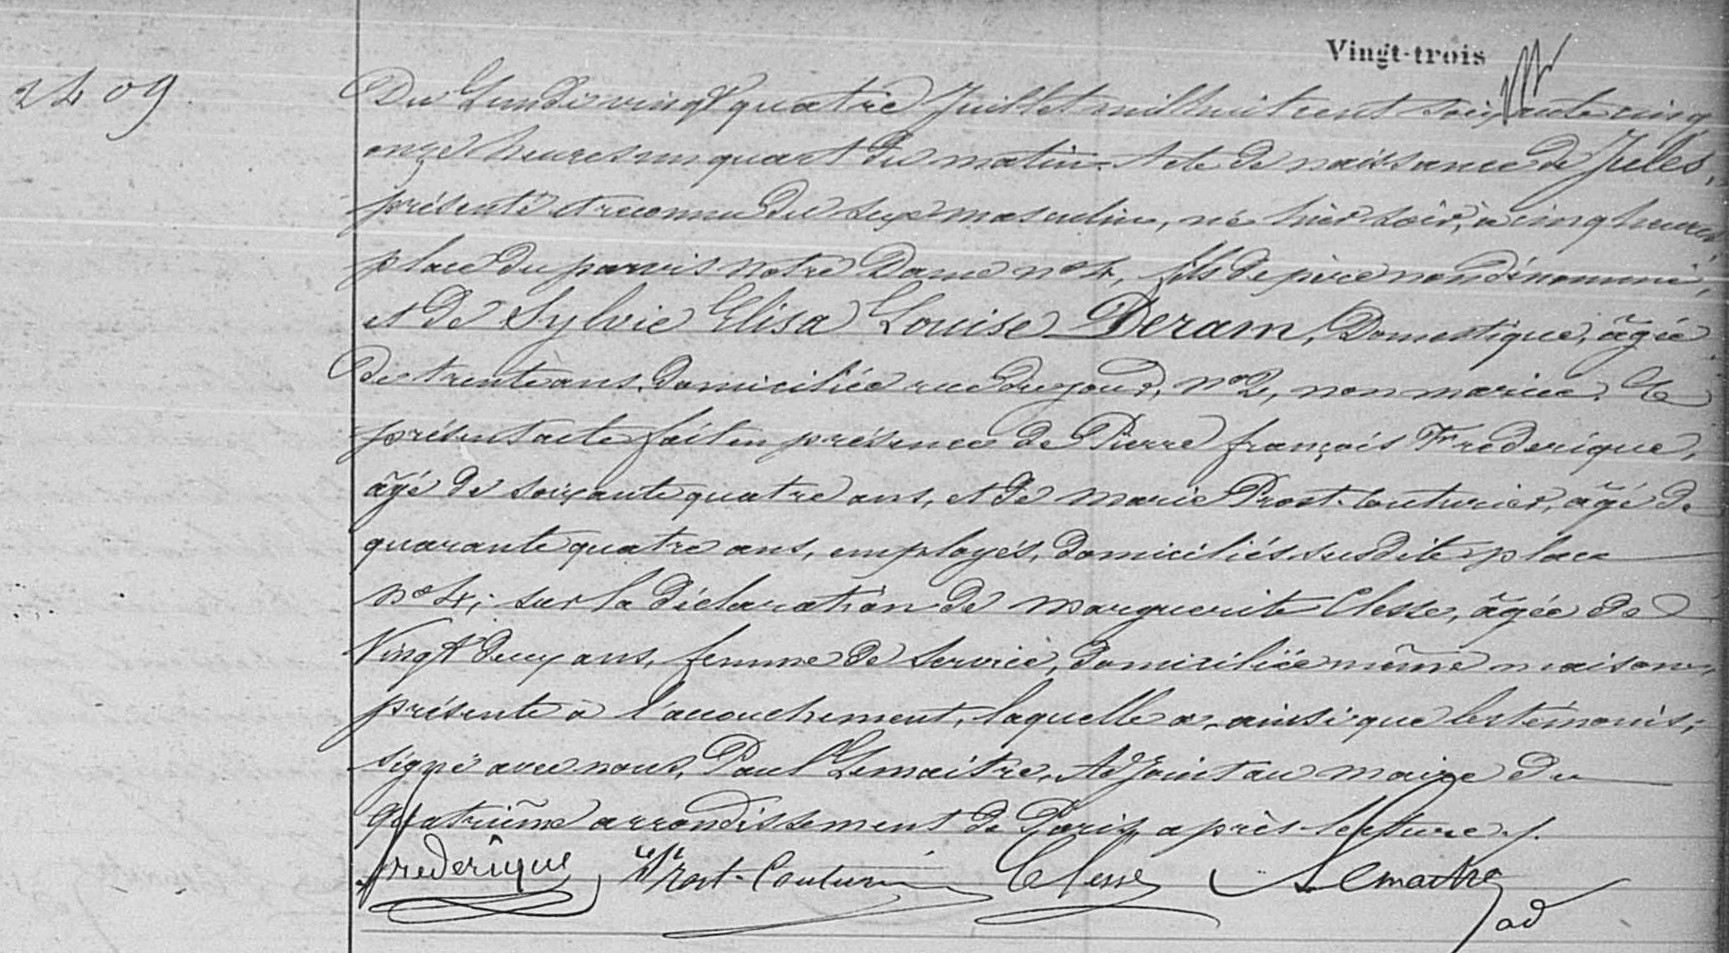 Vingt-trois
2409.
Du Lundi vingt quatre Juillet mil huit cent soixante cinq
onze heures un quart du matin. Acte de naissance de Jules,
présenté et reconnu du sexe masculin, né hier soir, à cinq heures
place du parvis notre Dame no 4, fils de père non dénommé,
et de Sylvie Elisa Louise Deram, Domestique, âgée
De trente ans, domiciliée rue du jour, no 2, non mariée. Le
présent acte fait en présence de Pierre françois Frederique,
âgé de soixante quatre ans, et de Marie Prost-Couturier, âgé de
quarante quatre ans, employés, domiciliés susdite place
no 4; sur la déclaration de Marguerite Clesse, âgée de
Vingt deux ans, femme de service, domiciliée même maison,
présente à l'accouchement, laquelle a, ainsi que les témoins,
signé avec nous, Paul Lemaitre, Adjoint au maire du
quatrième arrondissement de Paris, après lecture./.
frederique Prost-Couturier Clesse Lemaitre
ad